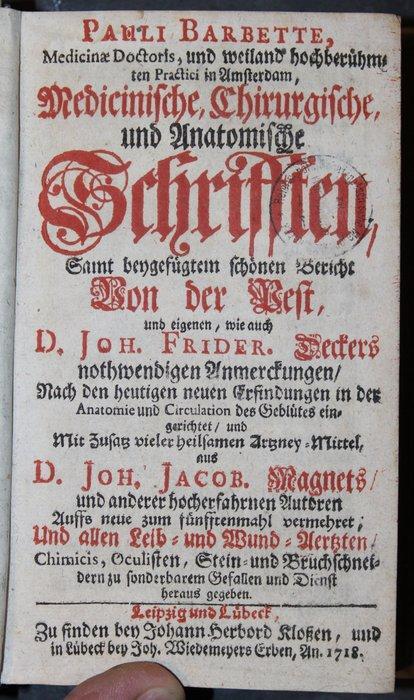 PAULI BARBETTE,
Medicinæ Doctoris, und weiland hochberühm-
ten Practici in Amsterdam,
Medicinische, Chirurgische,
und Anatomische
Schrifften,
Samt beygefügtem schönen Bericht
Von der Pest,
und eigenen, wie auch
D. JOH. FRIDER. Deckers
nothwendigen Anmerckungen/
Nach den heutigen neuen Erfindungen in der
Anatomie und Circulation des Geblütes ein-
gerichtet/ und
Mit Zusatz vieler heilsamen Artzney-Mittel,
aus
D. JOH. JACOB. Magnets/
und anderer hocherfahrnen Autoren
Auffs neue zum fünfftenmahl vermehret;
Und allen Leib- und Wund-Aertzten/
Chimicis, Oculisten, Stein- und Bruchschnei-
dern zu sonderbarem Gefallen und Dienst
heraus gegeben.
Leipzig und Lübeck,
Zu finden bey Johann Herbord Kloßen, und
in Lübeck bey Joh. Wiedemeyers Erben, An. 1718.